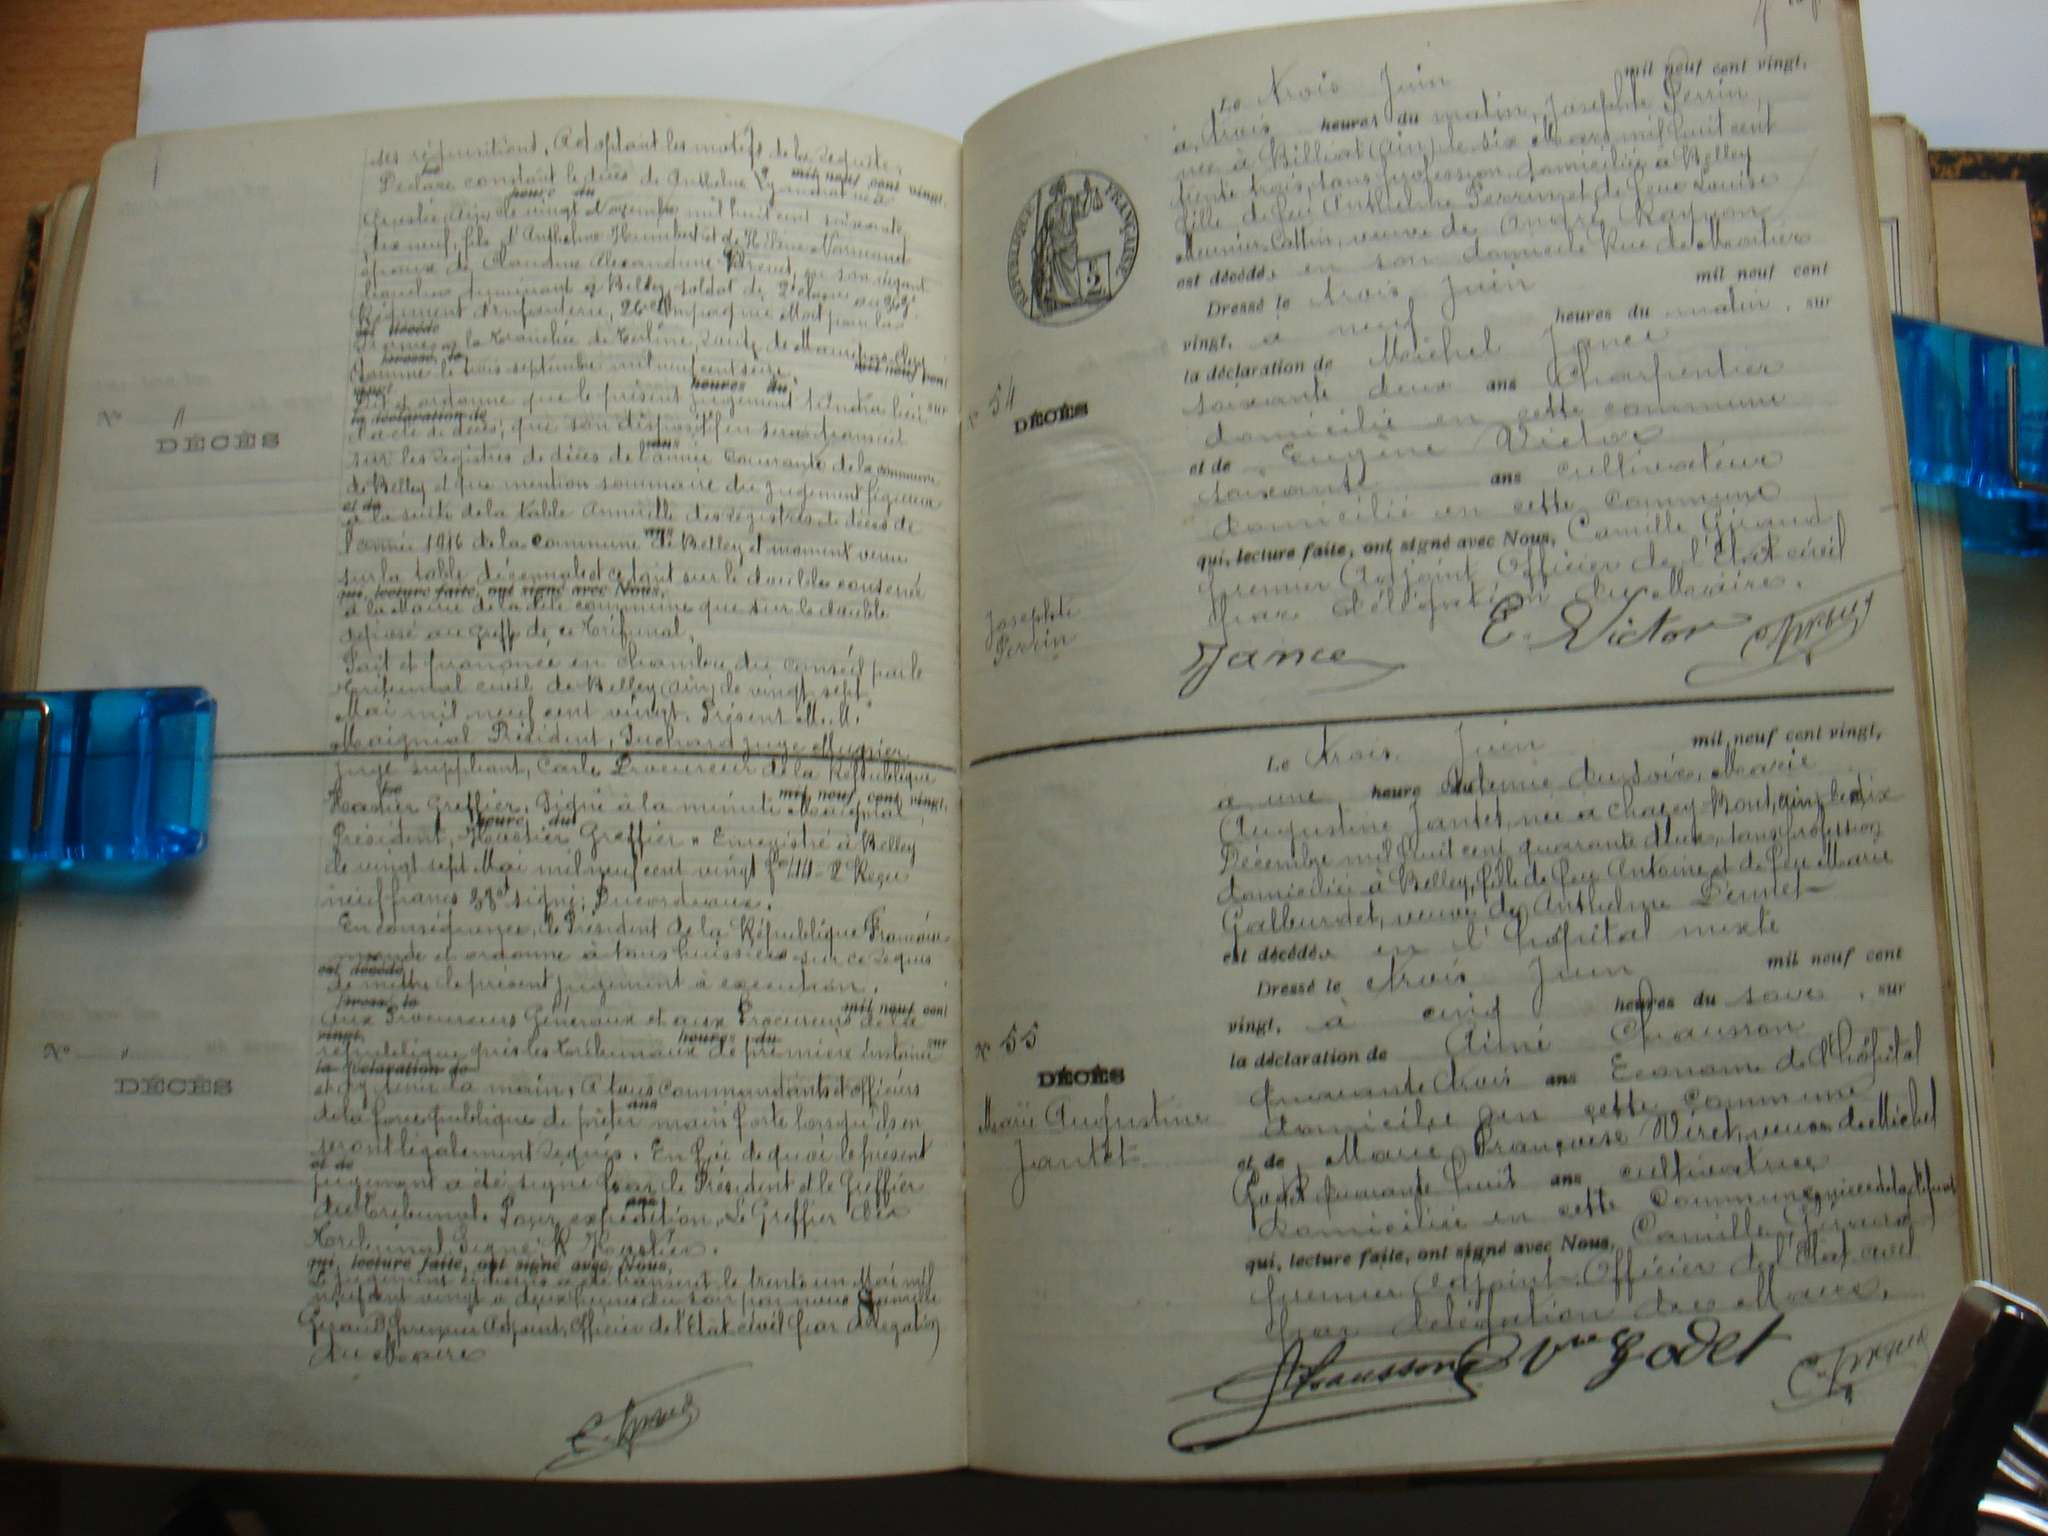 ses réquisitions, Adoptant les motifs de la requête,
Le mil neuf cent vingt,
Déclare constant le décès de Anthelme né à
heure du
(Ain) le vingt Novembre mil huit cent soixante
dix neuf, fils d'Anthelme Humbert et de
époux de Claudine Alexandrine en son vivant
demeurant à Belley, soldat de 2e classe au
Régiment d'infanterie, 26e Compagnie Mort pour la
est décédé
France à la tranchée de
Dressé le mil neuf cent
Somme le trois septembre mil neuf cent seize
vingt heures du sur
Dit et ordonne que le présent jugement tiendra lieu
la déclaration de
d'acte de décès, que son dispositif en sera transcrit
ans
sur les registres de décès de l'année courante de la commune
de Belley et que mention sommaire du jugement figurera
et de
à la suite de la table annuelle des registres de décès de
ans
l'année 1916 de la commune de Belley et moment venu
sur la table décennale et ce tant sur le double conservé
qui, lecture faite, ont signé avec Nous,
à la Mairie de la dite commune que sur le double
déposé au greffe de ce Tribunal.
Fait et prononcé en chambre du conseil par le
Tribunal civil de Belley (Ain) le vingt sept
Mai mil neuf cent vingt. Présent M.M.
Maignial Président, juge Munier
juge suppléant, Carle Procureur de la République
Le mil neuf cent vingt,
Greffier. Signé à la minute Maignial
heure du
Président, Greffier " Enregistré à Belley
le vingt sept Mai mil neuf cent vingt Reçu
neuf francs signé:
En conséquence, le Président de la République Française
mande et ordonne à tous huissiers sur ce requis
est décédé
de mettre le présent jugement à exécution.
Dressé le mil neuf cent
Aux Procureurs Généraux et aux Procureurs de la
vingt heures du sur
république près les tribunaux de première instance
la déclaration de
et d'y tenir la main, A tous commandants et officiers
ans
de la force publique de prêter main forte lorsqu'ils en
seront légalement requis. En foi de quoi le présent
et de
jugement a été signé par le Président et le Greffier
ans
du tribunal. Pour expédition, Le Greffier du
Tribunal Signé
qui, lecture faite, ont signé avec Nous,
Le jugement ci-dessus a été transcrit le trente un Mai mil
neuf cent vingt à deux heures du soir par nous Camille
Giraud, premier Adjoint, Officier de l'Etat civil par délégation
du Maire
No "
DÉCÈS
No "
DÉCÈS
Le trois Juin mil neuf cent vingt,
à trois heures du matin, Josephte Perrin,
née à Billiat (Ain) le six Mars mil huit cent
trente trois, sans profession domiciliée à Belley
fille de feu Anthelme Perrin et de feue Louise
Meunier Cottin, veuve de André
est décédée en son domicile Rue du
Dressé le trois Juin mil neuf cent
vingt, à neuf heures du matin, sur
la déclaration de Michel Jance
soixante deux ans Charpentier
domicilié en cette commune
et de Eugène Victor
soixante ans cultivateur
domicilié en cette commune
qui, lecture faite, ont signé avec Nous, Camille Giraud
premier Adjoint Officier de l'Etat civil
par délégation du Maire.
Jance E. Victor
RÉPUBLIQUE FRANÇAISE
No 54
DÉCÈS
Josephte
Perrin
Le trois Juin mil neuf cent vingt,
à une heure du soir, Marie
Augustine Jantet, née à Chazey Bons (Ain) le dix
Décembre mil huit cent quarante deux, sans profession
domiciliée à Belley, fille de feu Antoine et de feu Marie
veuve de Anthelme
est décédée en l'hôpital mixte
Dressé le trois Juin mil neuf cent
vingt, à cinq heures du soir, sur
la déclaration de Aimé Chausson
quarante trois ans Econome de l'hôpital
domicilié en cette commune
et de Marie Françoise Viret, veuve de Michel
Godet quarante huit ans cultivatrice
domiciliée en cette commune, nièce de la défunte
qui, lecture faite, ont signé avec Nous, Camille Giraud
premier Adjoint Officier de l'Etat civil
par délégation du Maire.
Chausson Vve Godet
No 55
DÉCÈS
Marie Augustine
Jantet